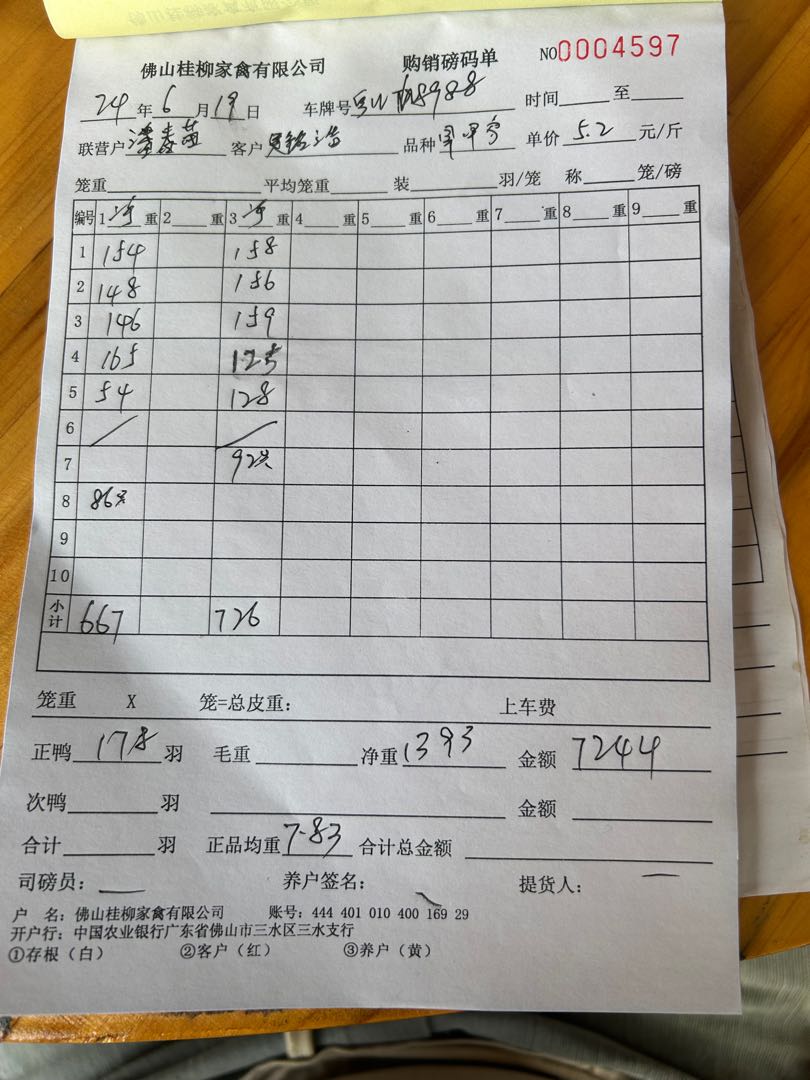 佛山桂柳家禽有限公司 购销磅码单 NO0004597
24年6月19日 车牌号 8988 时间 至
联营户 客户 品种 单价 5.2 元/斤
笼重 平均笼重 装 羽/笼 称 笼/磅
编号 1 净 重 2 重 3 净 重 4 重 5 重 6 重 7 重 8 重 9 重
1 154 158
2 148 156
3 146 159
4 165 125
5 54 128
6 / /
7 92只
8 86只
9
10
小计 667 726
笼重 X 笼=总皮重: 上车费
正鸭 178 羽 毛重 净重 1393 金额 7244
次鸭 羽 金额
合计 羽 正品均重 7.83 合计总金额
司磅员: 养户签名: 提货人:
户 名: 佛山桂柳家禽有限公司 账号: 444 401 010 400 169 29
开户行: 中国农业银行广东省佛山市三水区三水支行
①存根(白) ②客户(红) ③养户(黄)